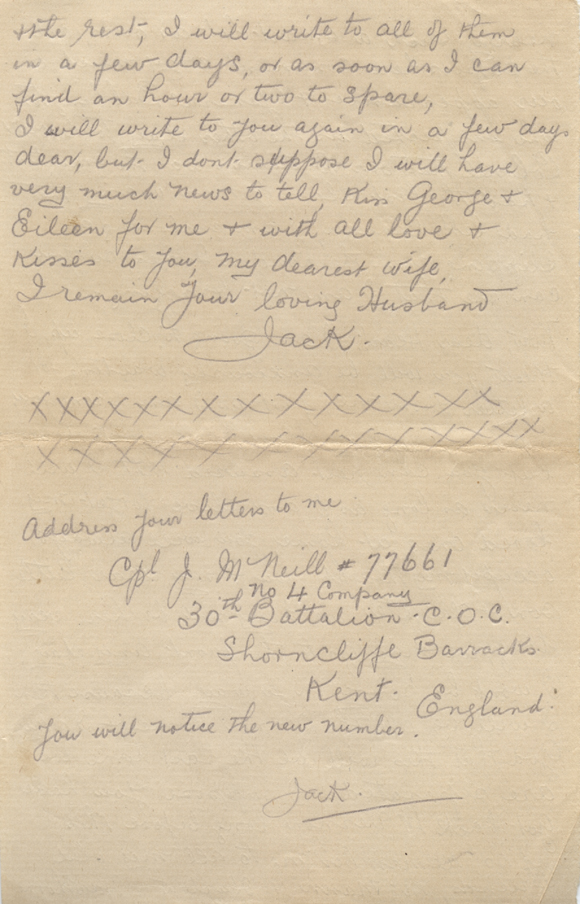 + the rest, I will write to all of them
in a few days, or as soon as I can
find an hour or two to spare,
I will write to you again in a few days
dear, but I dont suppose I will have
very much news to tell, Kiss George +
Eileen for me + with all love +
Kisses to you, my dearest wife,
I remain your loving Husband
Jack.
XXXXXXXXXXXXXXXX
XXXXXXXXXXXXXXX
Address your letters to me
Cpl J. McNeill # 77661
No 4 Company
30th Battalion. C.O.C.
Shorncliffe Barracks.
Kent.
England.
You will notice the new number.
Jack.